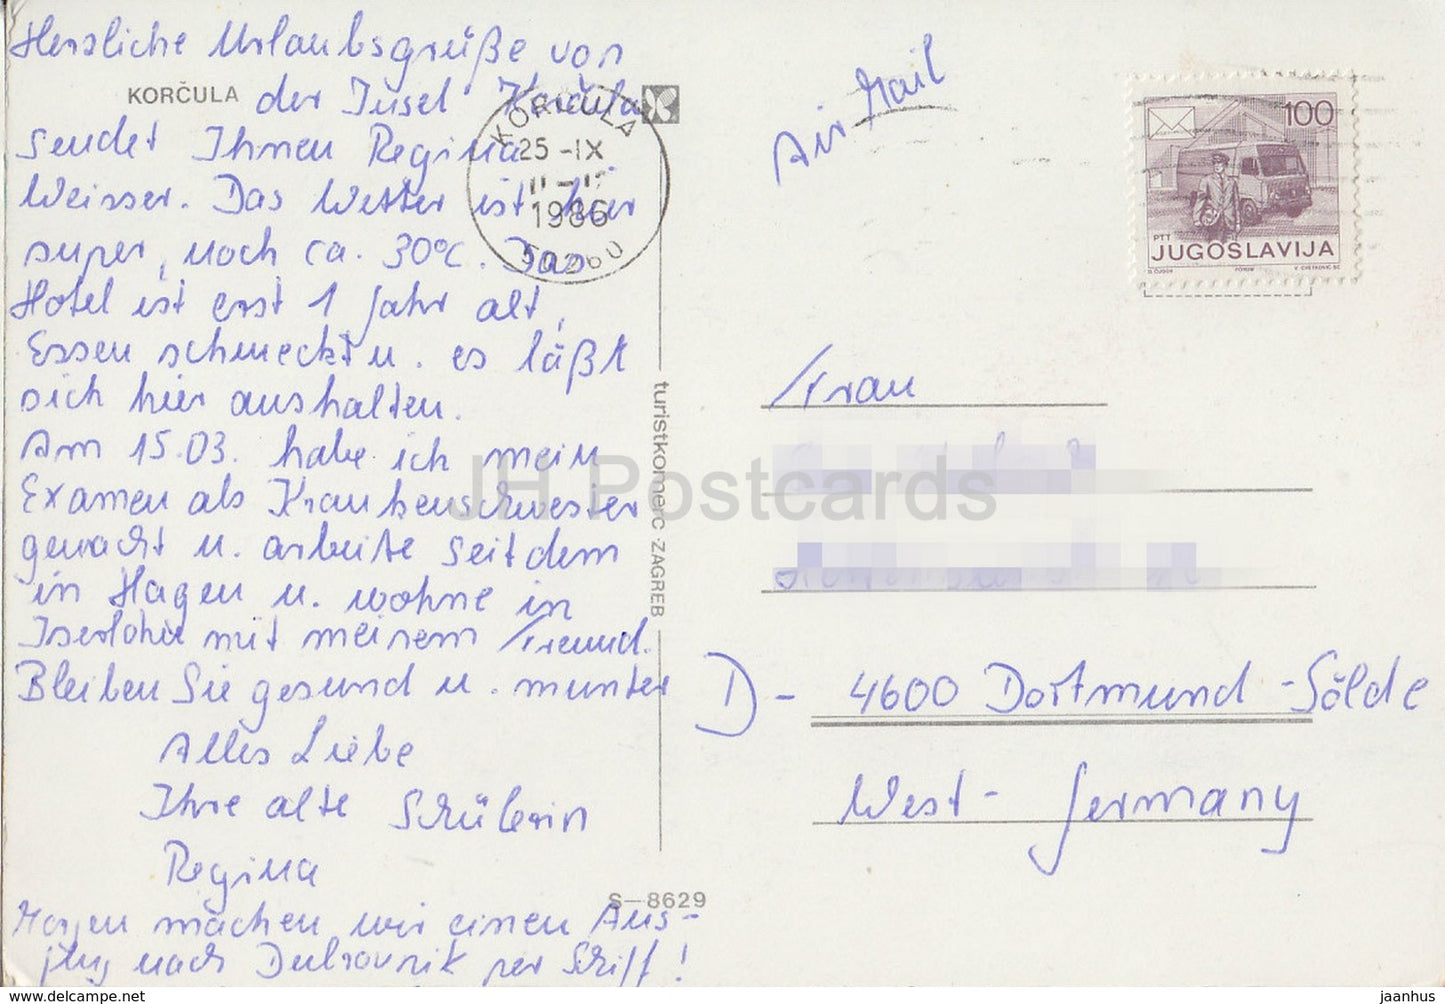 Herzliche Urlaubsgrüße von
KORČULA der Insel Korčula
sendet Ihnen Regina
Weisser. Das Wetter ist hier
super, noch ca. 30°C. Das
Hotel ist erst 1 Jahr alt,
Essen schmeckt u. es läßt
sich hier aushalten.
Am 15.03. habe ich mein
Examen als Krankenschwester
gemacht u. arbeite seitdem
in Hagen u. wohne in
Iserlohn mit meinem Freund.
Bleiben Sie gesund u. munter
Alles Liebe
Ihre alte Schülerin
Regina
Morgen machen wir einen Aus-
flug nach Dubrovnik per Schiff!
KORČULA
25-IX
1986
50260
turistkomerc ZAGREB
S-8629
Air Mail
100
PTT
JUGOSLAVIJA
Frau
D- 4600 Dortmund-Sölde
West-Germany
JH Postcards
www.delcampe.net
jaanhus